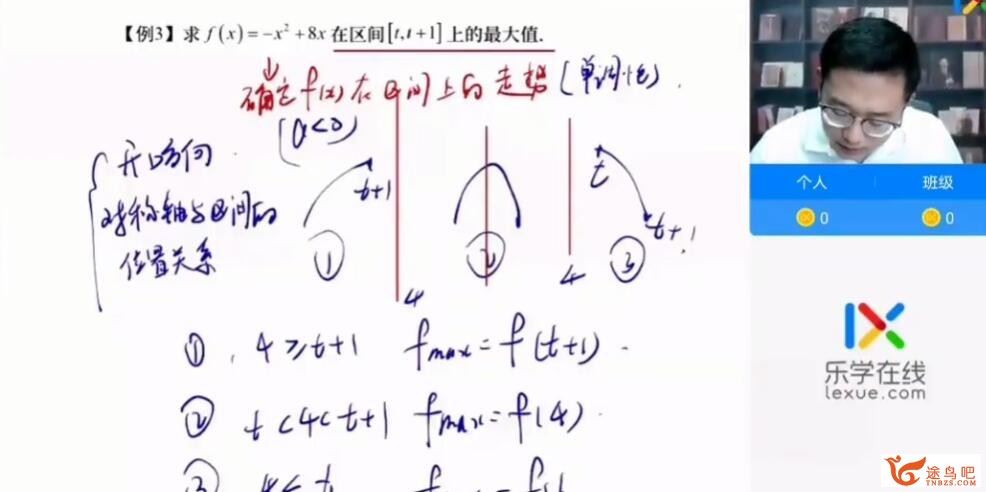 【例3】求 f(x)=-x²+8x 在区间[t,t+1]上的最大值.
确定f(x)在区间上的走趋(单调性).
(a<0)
开口方向.
对称轴与区间的
位置关系
t+1
①
4
②
t
t+1
4
③
① 4≥t+1 fmax=f(t+1).
② t<4<t+1 fmax=f(4).
③
个人 班级
0 0
乐学在线
lexue.com
途鸟吧
TNBZS.COM